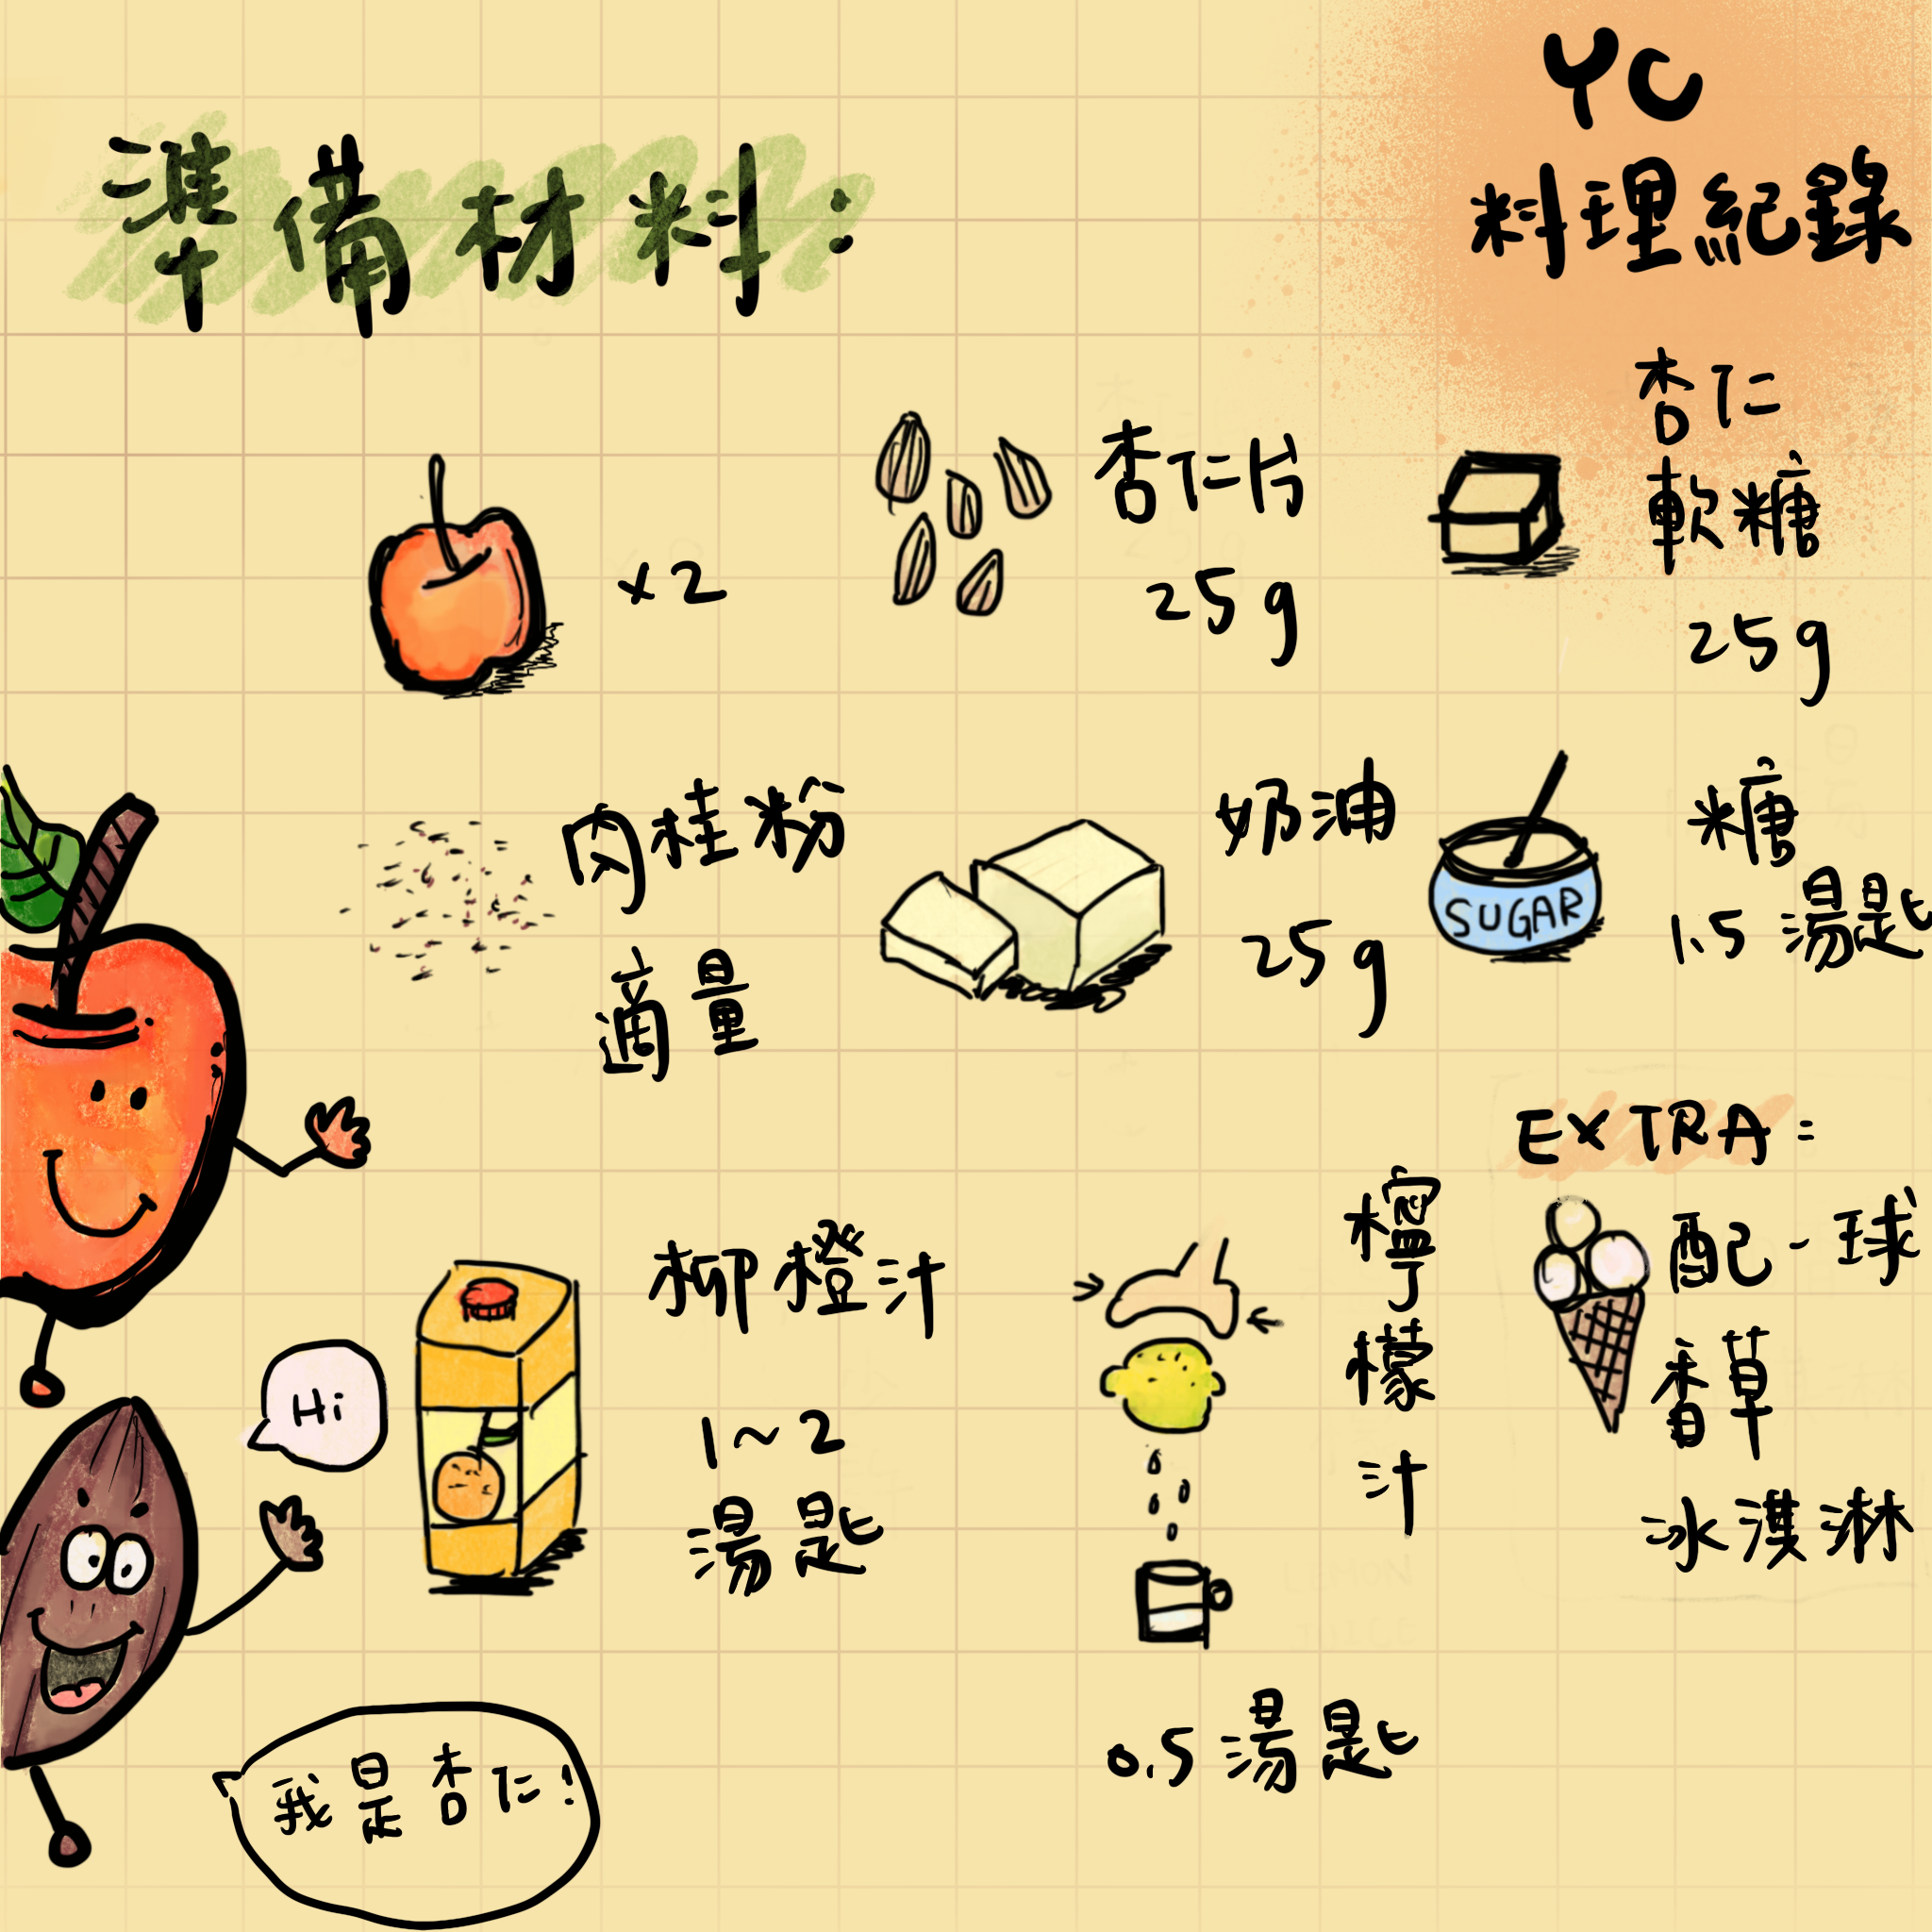 YC
料理紀錄
準備材料：
x2
杏仁片
25g
杏仁
軟糖
25g
肉桂粉
適量
奶油
25g
SUGAR
糖
1.5 湯匙
柳橙汁
1~2
湯匙
檸檬汁
0.5 湯匙
EXTRA:
配一球
香草
冰淇淋
Hi
我是杏仁!